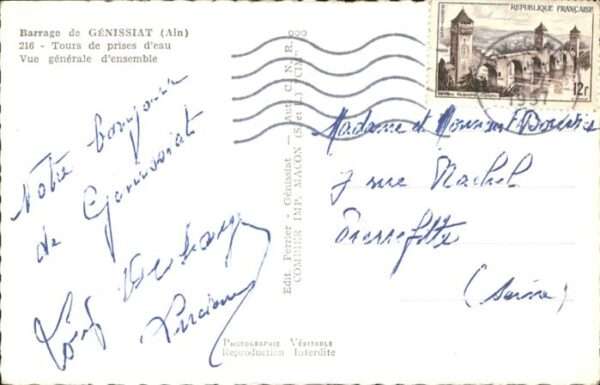 Barrage de GÉNISSIAT (Ain)
216 - Tours de prises d'eau
Vue générale d'ensemble
Notre bonjour
de Génissiat
Edit. Perrier - Génissiat — Aut. C. N. R. 090
COMBIER IMP. MACON (S. et L.) "CIM"
PHOTOGRAPHIE VÉRITABLE
Reproduction Interdite
REPUBLIQUE FRANÇAISE
12f
Madame et Monsieur
7 rue Rachel
Pierrefitte
(Seine)